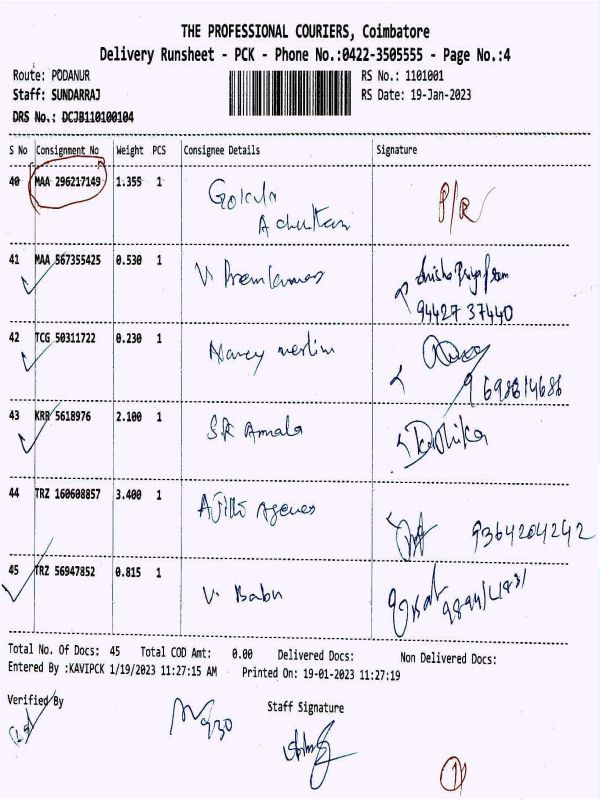 THE PROFESSIONAL COURIERS, Coimbatore
Delivery Runsheet - PCK - Phone No.:0422-3505555 - Page No.:4
Route: PODANUR RS No.: 1101001
Staff: SUNDARRAJ RS Date: 19-Jan-2023
DRS No.: DCJB110100104
S No Consignment No Weight PCS Consignee Details Signature
40 MAA 296217149 1.355 1 P/R
41 MAA 567355425 0.530 1 V.
94427 37440
42 TCG 50311722 0.230 1 Nancy merlin
43 KRR 5618976 2.100 1 SR Amala
44 TRZ 160608857 3.400 1
9364204242
45 TRZ 56947852 0.815 1 V. Babu
Total No. Of Docs: 45 Total COD Amt: 0.00 Delivered Docs: Non Delivered Docs:
Entered By :KAVIPCK 1/19/2023 11:27:15 AM Printed On: 19-01-2023 11:27:19
Verified By Staff Signature
930
1